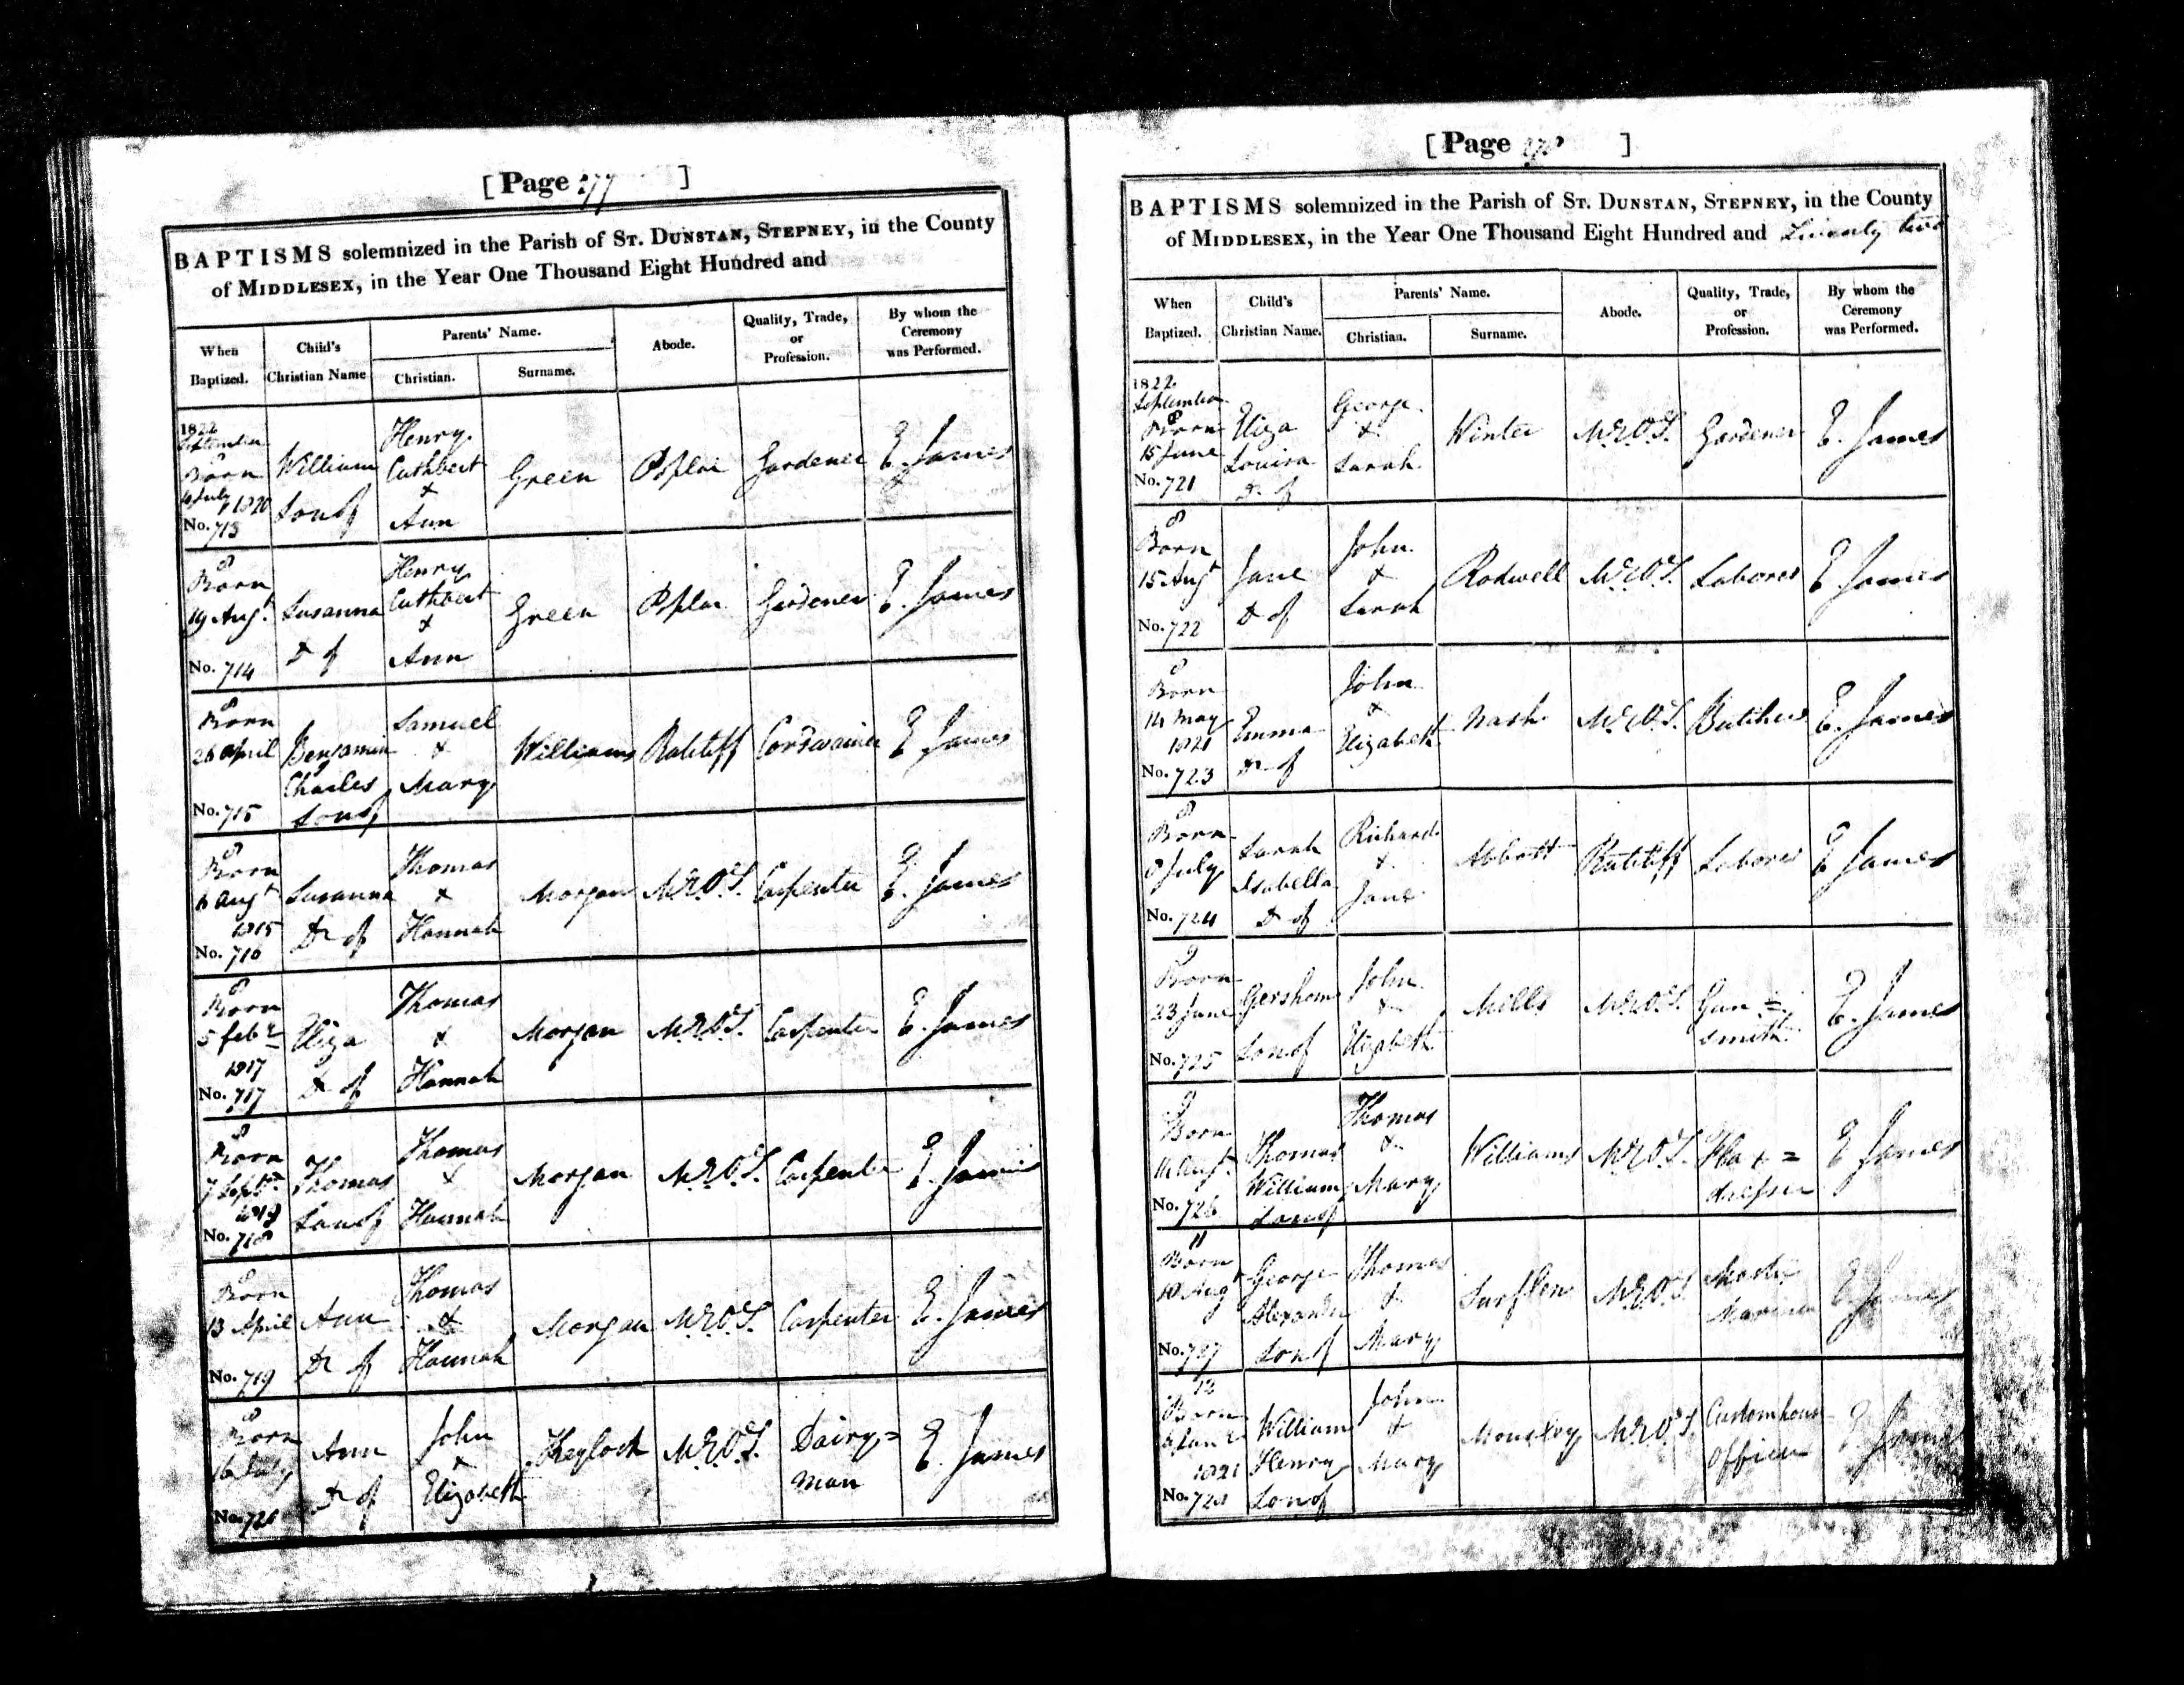 [ Page 277 ]
BAPTISMS solemnized in the Parish of ST. DUNSTAN, STEPNEY, in the County
of MIDDLESEX, in the Year One Thousand Eight Hundred and
When Baptized. Child's Christian Name Parents' Name. Christian. Surname. Abode. Quality, Trade, or Profession. By whom the Ceremony was Performed.
1822 September 8 Born 10 July 1820 No. 713 William Son of Henry Cuthbert & Ann Green Poplar Gardener E. James
8 Born 19 Augt No. 714 Susanna D of Henry Cuthbert & Ann Green Poplar Gardener E. James
8 Born 26 April No. 715 Benjamin Charles Son of Samuel & Mary Williams Ratcliff Cordwainer E James
8 Born 6 Augt 1815 No. 716 Susanna Dr of Thomas & Hannah Morgan M.E.O.T. Carpenter E. James
8 Born 5 Feby 1817 No. 717 Eliza D of Thomas & Hannah Morgan M.E.O.T. Carpenter E. James
8 Born 7 Septr 1819 No. 718 Thomas Son of Thomas & Hannah Morgan M.E.O.T. Carpenter E. James
8 Born 13 April No. 719 Ann Dr of Thomas & Hannah Morgan M.E.O.T. Carpenter E. James
8 Born 16 July No. 720 Ann Dr of John & Elizabeth Keylock M.E.O.T. Dairy= man E. James
[ Page 278 ]
BAPTISMS solemnized in the Parish of ST. DUNSTAN, STEPNEY, in the County
of MIDDLESEX, in the Year One Thousand Eight Hundred and Twenty two
When Baptized. Child's Christian Name. Parents' Name. Christian. Surname. Abode. Quality, Trade, or Profession. By whom the Ceremony was Performed.
1822. September 8 Born 15 June No. 721 Eliza Louisa D of George & Sarah Winter M.E.O.T. Gardener E. James
8 Born 15 Augt No. 722 Jane D of John & Sarah Rodwell M.E.O.T. Laborer E James
8 Born 14 May 1821 No. 723 Emma Dr of John & Elizabeth Nash M.E.O.T. Butcher E. James
8 Born 8 July No. 724 Sarah Isabella D of Richard & Jane Abbott Ratcliff Laborer E James
9 Born 23 June No. 725 Gershom Son of John & Elizabeth Mills M.E.O.T. Gun= smith E. James
9 Born 14 Augt No. 726 Thomas William Son of Thomas & Mary Williams M.E.O.T. Flax= dresser E James
11 Born 10 Augt No. 727 George Alexander Son of Thomas & Mary Surflen M.E.O.T. Master Mariner E. James
12 Born 1821 No. 728 William Henry Son of John & Mary M.E.O.T. Customhouse Officer E. James